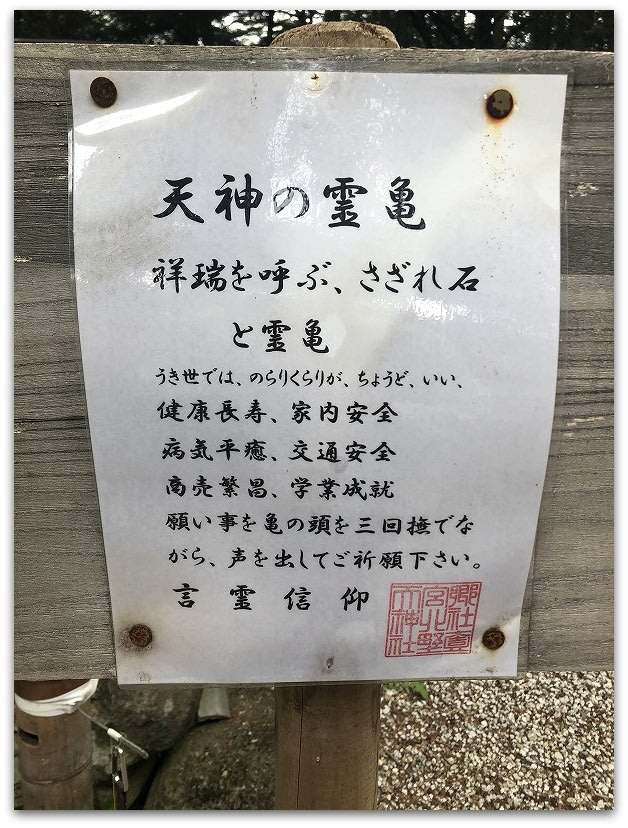 天神の霊亀
祥瑞を呼ぶ、さざれ石
と霊亀
うき世では、のらりくらりが、ちょうど、いい、
健康長寿、家内安全
病気平癒、交通安全
商売繁昌、学業成就
願い事を亀の頭を三回撫でな
がら、声を出してご祈願下さい。
言霊信仰